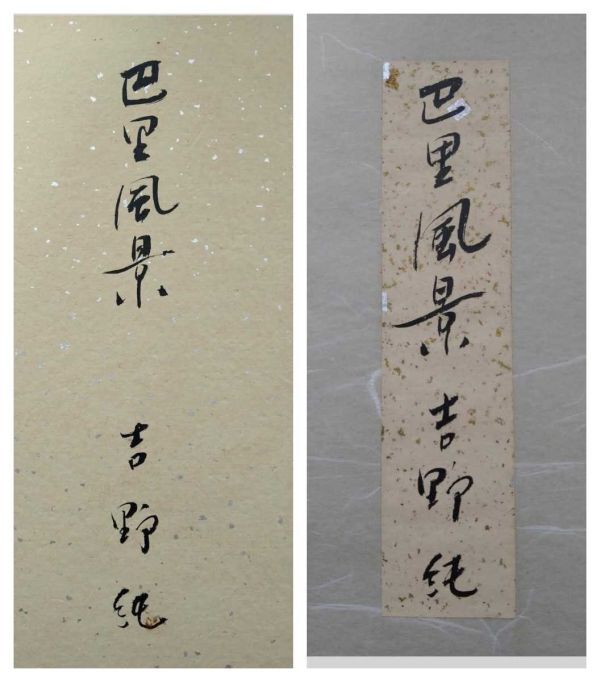 巴里風景 吉野純
巴里風景 吉野純